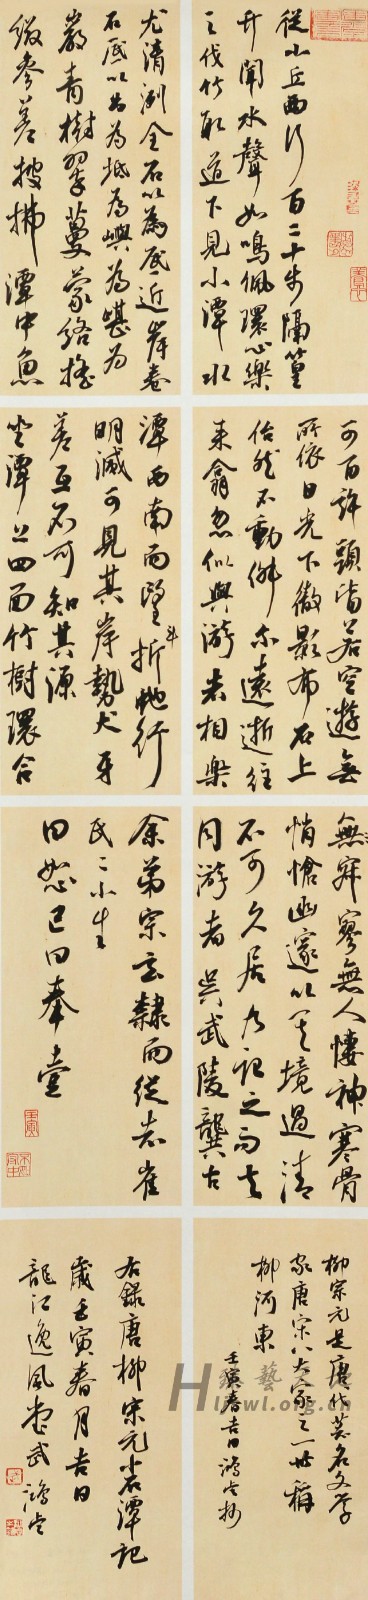 從小丘西行百二十步隔篁
竹聞水聲如鳴佩環心樂
之伐竹取道下見小潭水
尤清冽全石以為底近岸卷
石底以出為坻為嶼為嵁為
巖青樹翠蔓蒙絡搖
綴參差披拂潭中魚
可百許頭皆若空遊無
所依日光下徹影布石上
佁然不動俶尔遠逝往
來翕忽似與游者相樂
潭西南而望斗折蛇行
明滅可見其岸勢犬牙
差互不可知其源
坐潭上四面竹樹環合
無寂寥無人悽神寒骨
悄愴幽邃以其境過清
不可久居乃記之而去
同游者吳武陵龔古
余弟宗玄隸而從者崔
氏二小生
曰恕己曰奉壹
柳宗元是唐代著名文學
家唐宋八大家之一世稱
柳河東
壬寅春吉日鴻抄
右錄唐柳宗元小石潭記
歲壬寅春月吉日
龍江逸風堂武鴻